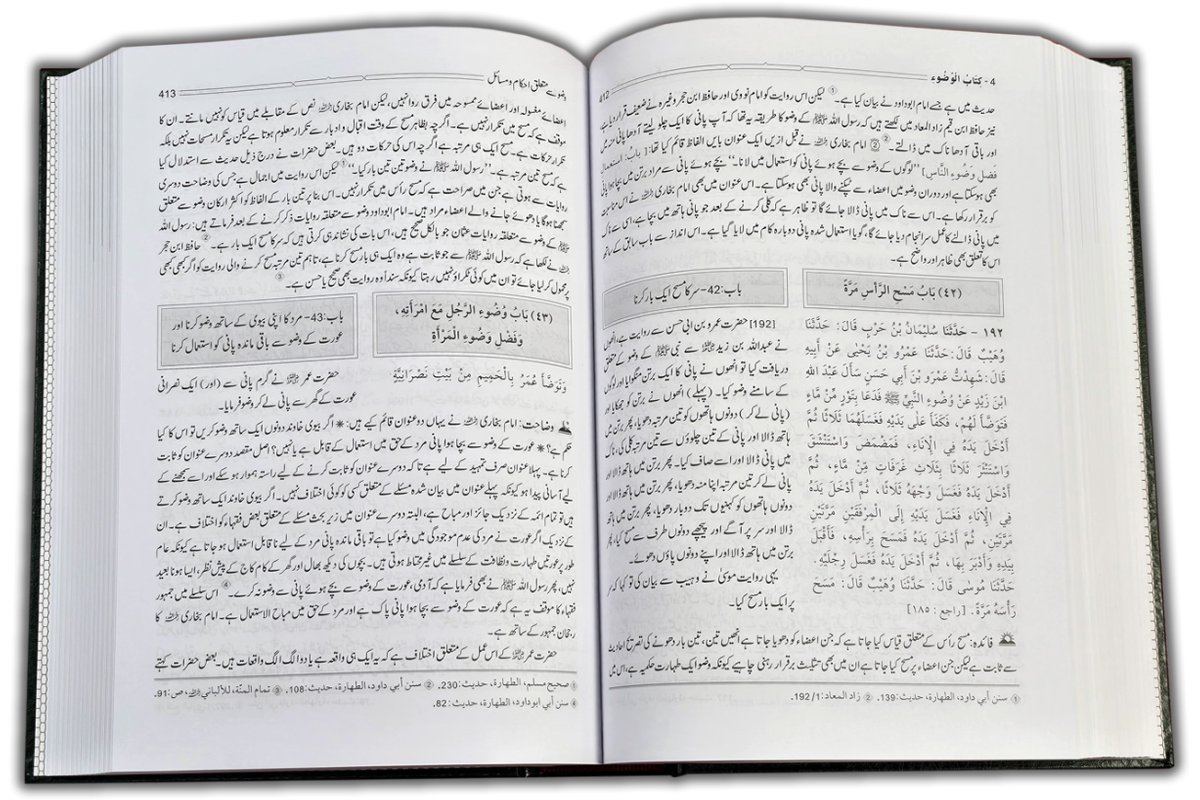 4 - كتاب الوضوء
412
حدیث میں ہے جسے امام ابوداود نے بیان کیا ہے۔① لیکن اس روایت کو امام نووی اور حافظ ابن حجر وغیرہ نے ضعیف قرار دیا ہے،
نیز حافظ ابن قیم زاد المعاد میں لکھتے ہیں کہ رسول اللہ ﷺ کے وضو کا طریقہ یہ تھا کہ آپ پانی کا ایک چلو لیتے آدھا پانی منہ میں
اور باقی آدھا ناک میں ڈالتے۔② [2] امام بخاری ؒ نے قبل ازیں ایک عنوان بایں الفاظ قائم کیا تھا: [باب: استعمال
فضل وضوء الناس] ’’لوگوں کے وضو سے بچے ہوئے پانی کو استعمال میں لانا۔‘‘ بچے ہوئے پانی سے مراد برتن میں بچا ہوا پانی
بھی ہوسکتا ہے اور دوران وضو میں اعضاء سے ٹپکنے والا پانی بھی ہوسکتا ہے۔ اس عنوان میں بھی امام بخاری ؒ نے اس مناسبت
کو برقرار رکھا ہے۔ اس سے ناک میں پانی ڈالا جائے گا تو ظاہر ہے کہ کلی کرنے کے بعد جو پانی ہاتھ میں بچا ہے، اسی سے ناک
میں پانی ڈالنے کا عمل سرانجام دیا جائے گا، گویا استعمال شدہ پانی دوبارہ کام میں لایا گیا ہے۔ اس انداز سے باب سابق کے ساتھ
اس کا تعلق بھی ظاہر اور واضح ہے۔
(٤٢) بَابُ مَسْحِ الرَّأْسِ مَرَّةً
باب: 42- سر کا مسح ایک بار کرنا
١٩٢ - حَدَّثَنَا سُلَيْمَانُ بْنُ حَرْبٍ قَالَ: حَدَّثَنَا
وُهَيْبٌ قَالَ: حَدَّثَنَا عَمْرُو بْنُ يَحْيَى عَنْ أَبِيهِ
قَالَ: شَهِدْتُ عَمْرَو بْنَ أَبِي حَسَنٍ سَأَلَ عَبْدَ اللهِ
ابْنَ زَيْدٍ عَنْ وُضُوءِ النَّبِيِّ ﷺ فَدَعَا بِتَوْرٍ مِّنْ مَّاءٍ
فَتَوَضَّأَ لَهُمْ، فَكَفَأَ عَلَى يَدَيْهِ فَغَسَلَهُمَا ثَلَاثًا ثُمَّ
أَدْخَلَ يَدَهُ فِي الْإِنَاءِ، فَمَضْمَضَ وَاسْتَنْشَقَ
وَاسْتَنْثَرَ ثَلَاثًا بِثَلَاثِ غَرَفَاتٍ مِّنْ مَّاءٍ، ثُمَّ
أَدْخَلَ يَدَهُ فَغَسَلَ وَجْهَهُ ثَلَاثًا، ثُمَّ أَدْخَلَ يَدَهُ
فِي الْإِنَاءِ، فَغَسَلَ يَدَيْهِ إِلَى الْمِرْفَقَيْنِ مَرَّتَيْنِ
مَرَّتَيْنِ، ثُمَّ أَدْخَلَ يَدَهُ فَمَسَحَ بِرَأْسِهِ، فَأَقْبَلَ
بِيَدِهِ وَأَدْبَرَ بِهَا، ثُمَّ أَدْخَلَ يَدَهُ فَغَسَلَ رِجْلَيْهِ.
حَدَّثَنَا مُوسَى قَالَ: حَدَّثَنَا وُهَيْبٌ قَالَ: مَسَحَ
رَأْسَهُ مَرَّةً. [راجع: ١٨٥]
[192] حضرت عمرو بن ابی حسن سے روایت ہے، انھوں
نے عبداللہ بن زید ؓ سے نبی ﷺ کے وضو کے متعلق
دریافت کیا تو انھوں نے پانی کا ایک برتن منگوایا اور لوگوں
کے سامنے وضو کیا۔ (پہلے) انھوں نے برتن کو جھکایا اور
(پانی لے کر) دونوں ہاتھوں کو تین مرتبہ دھویا، پھر برتن میں
ہاتھ ڈالا اور پانی کے تین چلوؤں سے تین مرتبہ کلی کی، ناک
میں پانی ڈالا اور اسے صاف کیا۔ پھر برتن میں ہاتھ ڈالا اور
پانی لے کر تین مرتبہ اپنا منہ دھویا، پھر برتن میں ہاتھ ڈالا اور
دونوں ہاتھوں کو کہنیوں تک دوبار دھویا، پھر برتن میں ہاتھ
ڈالا اور سر پر آگے اور پیچھے دونوں طرف سے مسح کیا، پھر
برتن میں ہاتھ ڈالا اور اپنے دونوں پاؤں دھوئے۔
یہی روایت موسیٰ نے وہیب سے بیان کی تو کہا کہ
سر پر ایک بار مسح کیا۔
فائدہ: مسح رأس کے متعلق قیاس کیا جاتا ہے کہ جن اعضاء کو دھویا جاتا ہے انھیں تین، تین بار دھونے کی تصریح احادیث
سے ثابت ہے لیکن جن اعضاء پر مسح کیا جاتا ہے ان میں بھی تثلیث برقرار رہنی چاہیے کیونکہ وضو ایک طہارت حکمیہ ہے، اس میں
① سنن أبي داود، الطهارة، حديث: 139. ② زاد المعاد: 192/1.
وضو سے متعلق احکام و مسائل
413
اعضائے مغسولہ اور اعضائے ممسوحہ میں فرق روا نہیں، لیکن امام بخاری ؒ نص کے مقابلے میں قیاس کو نہیں مانتے۔ ان کا
موقف ہے کہ مسح میں تکرار نہیں ہے۔ اگرچہ بظاہر مسح کے وقت اقبال و ادبار سے تکرار معلوم ہوتا ہے لیکن یہ تکرار مسحات نہیں بلکہ
تکرار حرکات ہے۔ مسح ایک ہی مرتبہ ہے اگرچہ اس کی حرکات دو ہیں۔ بعض حضرات نے درج ذیل حدیث سے استدلال کیا
ہے کہ مسح تین مرتبہ ہے۔ ’’رسول اللہ ﷺ نے وضو تین تین بار کیا۔‘‘① لیکن اس روایت میں اجمال ہے جس کی وضاحت دوسری
روایات سے ہوتی ہے جن میں صراحت ہے کہ مسح رأس میں تکرار نہیں۔ اس بنا پر تین بار کے الفاظ کو اکثر ارکان وضو سے متعلق
سمجھنا ہوگا یا دھوئے جانے والے اعضاء مراد ہیں۔ امام ابوداود وضو سے متعلقہ روایات ذکر کرنے کے بعد فرماتے ہیں: رسول اللہ
ﷺ کے وضو سے متعلقہ روایات عثمان جو بالکل صحیح ہیں، اس بات کی نشاندہی کرتی ہیں کہ سر کا مسح ایک بار ہے۔② حافظ ابن حجر
ؒ نے لکھا ہے کہ رسول اللہ ﷺ سے جو ثابت ہے وہ ایک ہی بار مسح کرنا ہے، تاہم تین مرتبہ مسح کرنے والی روایت کو اگر کبھی کبھی
پر محمول کر لیا جائے تو ان میں کوئی ٹکراؤ نہیں رہتا کیونکہ سنداً وہ روایت بھی صحیح یا حسن ہے۔③
(٤٣) بَابُ وُضُوءِ الرَّجُلِ مَعَ امْرَأَتِهِ،
وَفَضْلِ وَضُوءِ الْمَرْأَةِ
باب: 43- مرد کا اپنی بیوی کے ساتھ وضو کرنا اور
عورت کے وضو سے باقی ماندہ پانی کو استعمال کرنا
وَتَوَضَّأَ عُمَرُ بِالْحَمِيمِ مِنْ بَيْتِ نَصْرَانِيَّةٍ
حضرت عمر ؓ نے گرم پانی سے (اور) ایک نصرانی
عورت کے گھر سے پانی لے کر وضو فرمایا۔
وضاحت: امام بخاری ؒ نے یہاں دو عنوان قائم کیے ہیں: * اگر بیوی خاوند دونوں ایک ساتھ وضو کریں تو اس کا کیا
حکم ہے؟ * عورت کے وضو سے بچا ہوا پانی مرد کے حق میں استعمال کے قابل ہے یا نہیں؟ اصل مقصد دوسرے عنوان کو ثابت
کرنا ہے۔ پہلا عنوان صرف تمہید کے لیے ہے تاکہ دوسرے عنوان کو ثابت کرنے کے لیے راستہ ہموار ہو سکے اور اسے سمجھنے کے
لیے آسانی پیدا ہو کیونکہ پہلے عنوان میں بیان شدہ مسئلے کے متعلق کسی کو کوئی اختلاف نہیں۔ اگر بیوی خاوند ایک ساتھ وضو کرتے
ہیں تو تمام ائمہ کے نزدیک جائز اور مباح ہے، البتہ دوسرے عنوان میں زیر بحث مسئلے کے متعلق بعض فقہاء کو اختلاف ہے۔ ان
کے نزدیک اگر عورت نے مرد کی عدم موجودگی میں وضو کیا ہے تو باقی ماندہ پانی مرد کے لیے ناقابل استعمال ہو جاتا ہے کیونکہ عام
طور پر عورتیں طہارت و نظافت کے سلسلے میں غیر محتاط ہوتی ہیں۔ بچوں کی دیکھ بھال اور گھر کے کام کاج کے پیش نظر، ایسا ہونا بعید
نہیں، پھر رسول اللہ ﷺ نے بھی فرمایا ہے کہ آدمی، عورت کے وضو سے بچے ہوئے پانی سے وضو نہ کرے۔④ اس سلسلے میں جمہور
فقہاء کا موقف یہ ہے کہ عورت کے وضو سے بچا ہوا پانی پاک ہے اور مرد کے حق میں مباح الاستعمال ہے۔ امام بخاری ؒ کا
رجحان جمہور کے ساتھ ہے۔
حضرت عمر ؓ کے اس عمل کے متعلق اختلاف ہے کہ یہ ایک ہی واقعہ ہے یا دو الگ الگ واقعات ہیں۔ بعض حضرات کہتے
① صحيح مسلم، الطهارة، حديث: 230. ② سنن أبي داود، الطهارة، حديث: 108. ③ تمام المنّة، للألباني ؒ، ص: 91.
④ سنن أبي داود، الطهارة، حديث: 82.